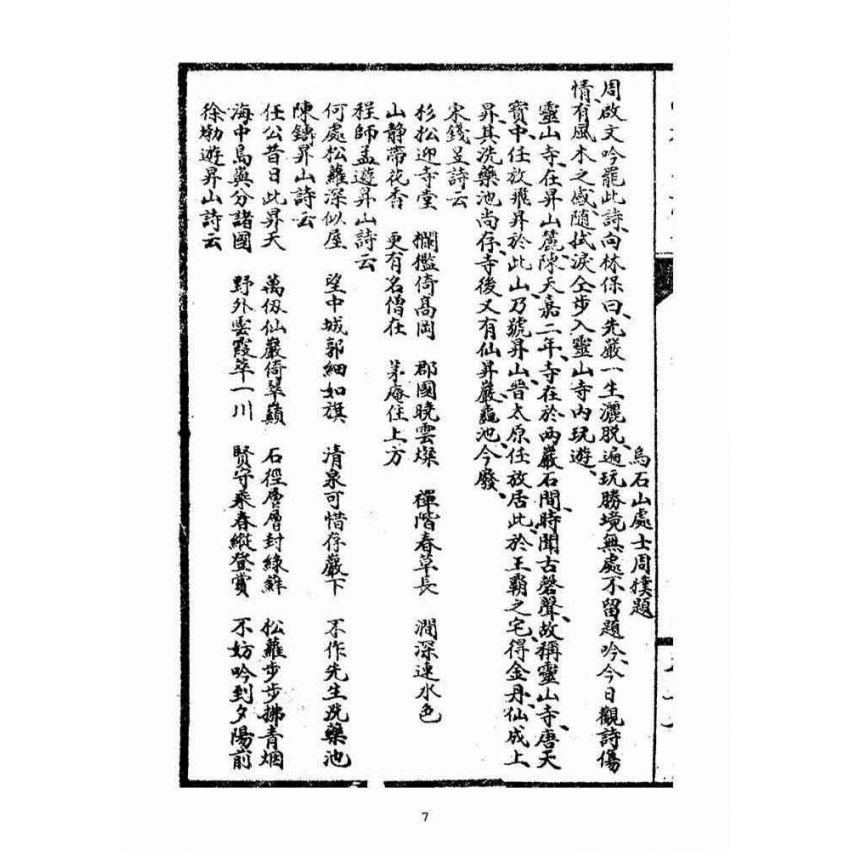 烏石山處士周樸題
周啟文吟罷此詩、向林保曰、先嚴一生灑脱、遍玩勝境無處不留題吟、今日觀詩傷
情、有風木之感、隨拭淚仝步入靈山寺內玩遊、
靈山寺在昇山麓、陳天嘉二年、寺在於兩巖石間、時聞古磬聲、故稱靈山寺、唐天
寶中、任放飛昇於此山、乃號昇山、晉太原任放居此、於王霸之宅、得金丹、仙成上
昇、其洗藥池尚存、寺後又有仙昇巖、龜池、今廢、
宋錢昱詩云
杉松迎寺堂 欄檻倚高岡 郡國曉雲燦 禪階春草長 澗深連水色
山静帶花香 更有名僧在 茅庵住上方
程師孟遊昇山詩云
何處松蘿深似屋 望中城郭細如旗 清泉可惜存巖下 不作先生洗藥池
陳鑄昇山詩云
任公昔日此昇天 萬仭仙巖倚翠巔 石徑層層封綠蘚 松蘿步步拂青烟
海中島與分諸國 野外雲霞萃一川 賢守乘春縱登賞 不妨吟到夕陽前
徐㶿遊昇山詩云
7